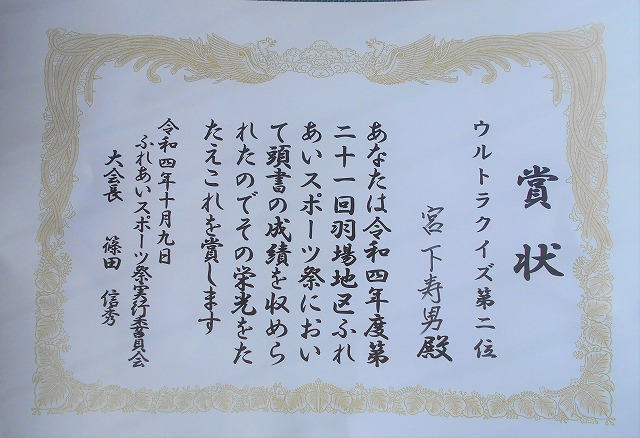 賞状
ウルトラクイズ第二位
宮下寿男殿
あなたは令和四年度第
二十一回羽場地区ふれ
あいスポーツ祭におい
て頭書の成績を収めら
れたのでその栄光をた
たえこれを賞します
令和四年十月九日
ふれあいスポーツ祭実行委員会
大会長 篠田 信秀